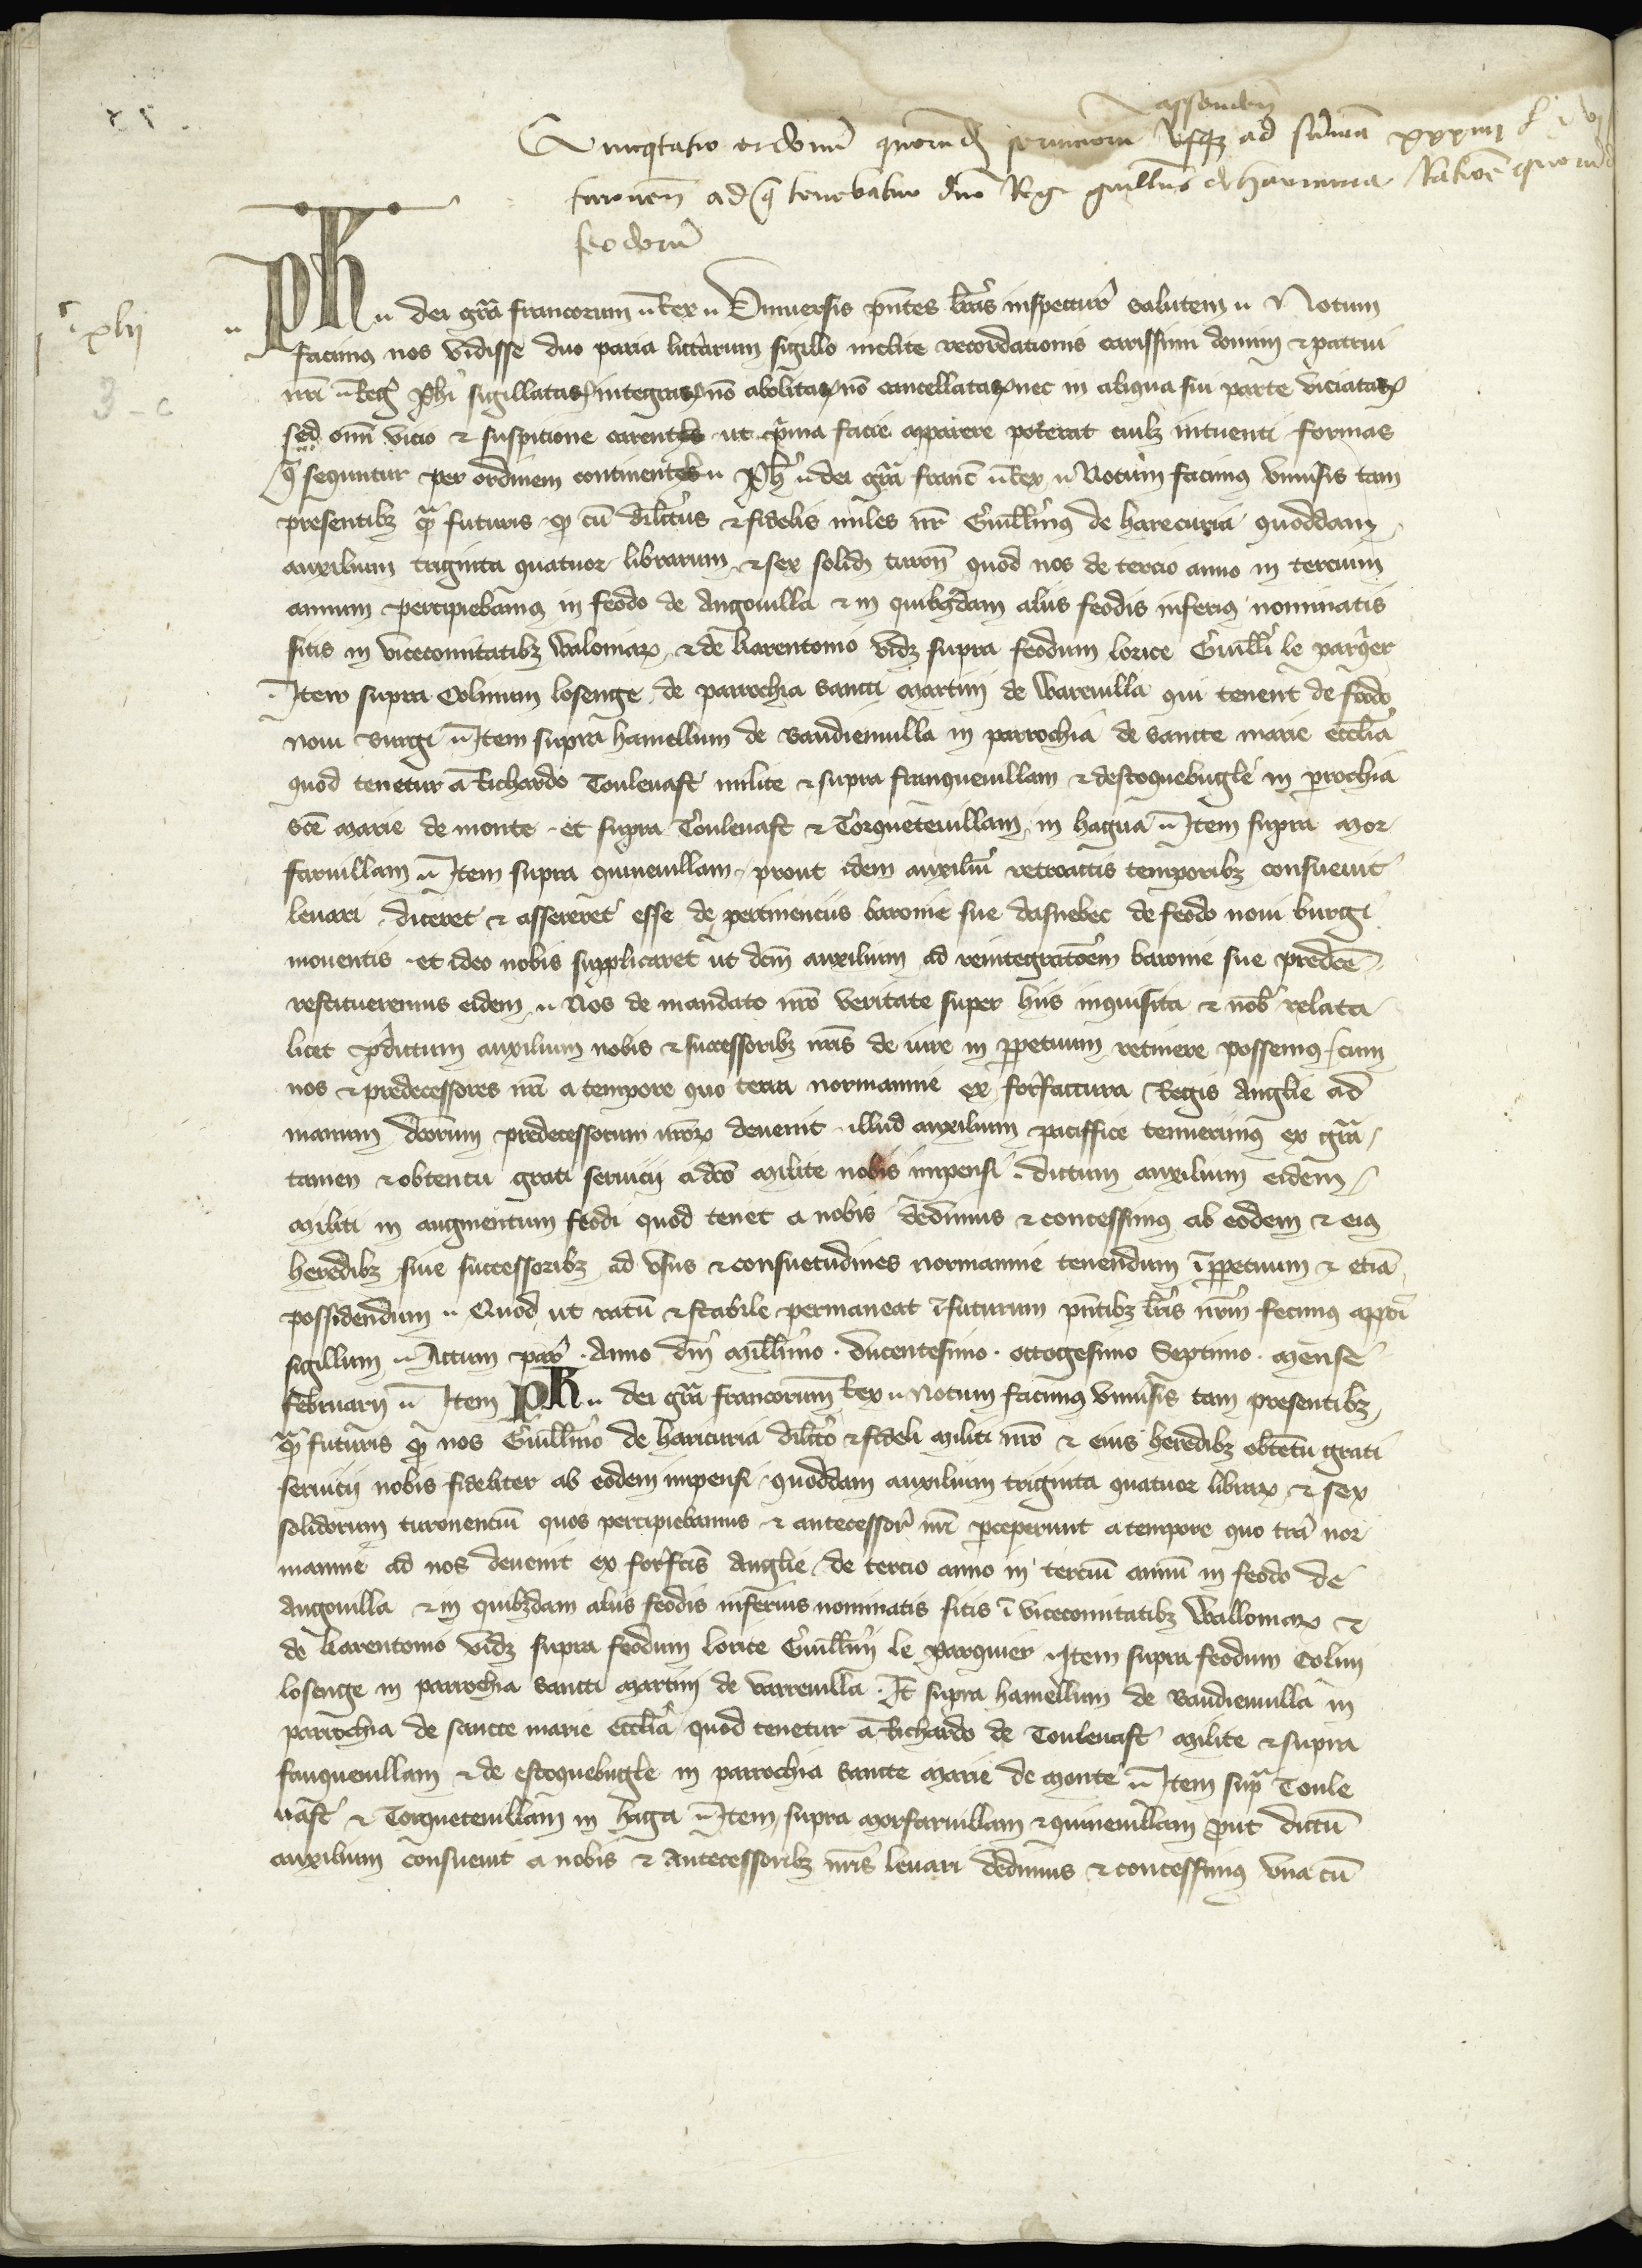 assenden
quorumd usque ad summa xxxiiii l
turonen ad q tenebatur dno Rege guillms de haricuria
feodorum
xlij
Ph dei gra francorum Rex Universis pntes lras inspectur salutem Notum
facimus nos vidisse duo paria litterarum sigillo inclite recordationis carissimi domini et patrui
nri Reg Phi sigillatas integras no abolitas no cancellatas nec in aliqua sui parte viciatas
sed omi vicio et suspicione carentes ut prima facie apparere poterat cuilz intuenti formas
q sequntur per ordinem continentes Ph dei gra franc Rex Notum facimus universis tam
presentibz q futuris q cu dilectus et fidelis miles nr Guillmus de harecuria quoddam
auxilium triginta quatuor librarum et sex solid turon quod nos de tercio anno in tercium
annum percipiebamus in feodo de Angouilla et in quibzdam aliis feodis inferius nominatis
sitis in vicecomitatibz Valoniar et de karentonio vidz supra feodum lorice Guilli le parqer
Item supra Colinum losenge de parrochia sancti martini de Warevilla qui tenent de feodo
novi burgi Item supra hamellum de vaudienuilla in parrochia de sancte marie ecclia
quod tenetur a Richardo Toulevast milite et supra franquevillam et destoquebugle in prochia
sce marie de monte et supra Toulevast et Torquetevillam in hagua Item supra mor
farvillam Item supra quinevillam prout idem auxiliu retroactis temporibz consuevit
levari diceret et assereret esse de pertinenciis baronie sue dasnebec de feodo novi burgi
moventis et ideo nobis supplicaret ut dcm auxilium ad reintegratoem baronie sue predce
restitueremus eidem Nos de mandato nro veritate super hiis inquisita et nob relata
licet pdictum auxilium nobis et successoribz nris de iure in ppetuum retinere possemus cum
nos et predecessores nri a tempore quo terra normannie ex forfactura Regis Anglie ad
manum dcorum predecessorum nror devenit illud auxilium paciffice tenuerimus ex gra
tamen et obtentu grati servicij a dco milite nobis impensi dictum auxilium eidem
militi in augmentum feodi quod tenet a nobis dedimus et concessimus ab eodem et eius
heredibz sive successoribz ad usus et consuetudines normannie tenendum i ppetuum et etia
possidendum Quod ut ratu et stabile permaneat i futurum pntibz lris nrm fecimus apponi
sigillum Actum par Anno dni millimo ducentesimo octogesimo Septimo mense
februarij Item Ph dei gra francorum Rex Notum facimus universis tam presentibz
q futuris q nos Guillmo de haricuria dilcto et fideli militi nro et eius heredibz obtetu grati
servicij nobis fideliter ab eodem impensi quoddam auxilium triginta quatuor librar et sex
solidorum turonenciu quos percipiebamus et antecessor nri pceperunt a tempore quo tra nor
mannie ad nos devenit ex forfcis Anglie de tercio anno in terciu annu in feodo de
Angouilla et in quibzdam aliis feodis inferius nominatis sitis i vicecomitatibz Walloniar et
de karentonio vidz supra feodum lorice Guillmi le parquier Item supra feodum Colini
losenge in parrochia sancti martini de varrevilla It supra hamellum de vaudienuilla in
parrochia de sancte marie ecclia quod tenetur a Richardo de Toulevast milite et supra
fanquevillam et de estoquebugle in parrochia sancte marie de monte Item supra Toule
vast et Torquetevillam in haga Item supra morfarvillam et quinevillam put dictu
auxilium consuevit a nobis et antecessoribz nris levari dedimus et concessimus una cu